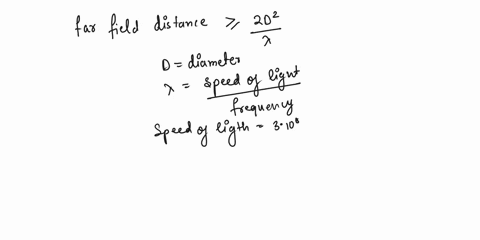 far field distance ≥ 2D²/λ
D = diameter
λ = speed of light/frequency
Speed of ligth = 3·10⁸